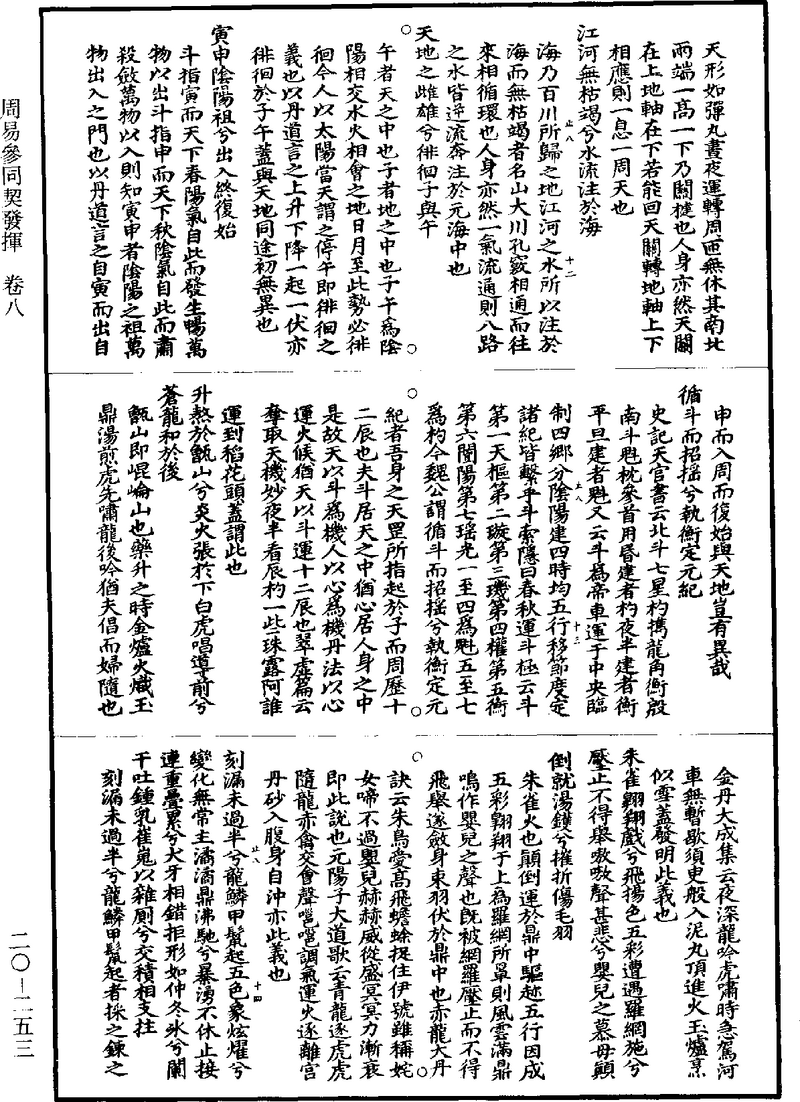 周易參同契發揮　卷八
天形如彈丸晝夜運轉周匝無休其南北
兩端一高一下乃關楗也人身亦然天關
在上地軸在下若能回天關轉地軸上下
相應則一息一周天也
江河無枯竭兮水流注於海
海乃百川所歸之地江河之水所以注於
海而無枯竭者名山大川孔竅相通而往
來相循環也人身亦然一氣流通則八路
之水皆逆流奔注於元海中也
天地之雌雄兮徘徊子與午
午者天之中也子者地之中也子午為陰
陽相交水火相會之地日月至此勢必徘
徊今人以太陽當天謂之停午即徘徊之
義也以丹道言之上升下降一起一伏亦
徘徊於子午蓋與天地同途初無異也
寅申陰陽祖兮出入終復始
斗指寅而天下春陽氣自此而發生暢萬
物以出斗指申而天下秋陰氣自此而肅
殺斂萬物以入則知寅申者陰陽之祖萬
物出入之門也以丹道言之自寅而出自
申而入周而復始與天地豈有異哉
循斗而招搖兮執衡定元紀
史記天官書云北斗七星杓攜龍角衡殷
南斗魁枕參首用昏建者杓夜半建者衡
平旦建者魁又云斗為帝車運于中央臨
制四鄉分陰陽建四時均五行移節度定
諸紀皆繫乎斗索隱曰春秋運斗極云斗
第一天樞第二璇第三璣第四權第五衡
第六闓陽第七瑤光一至四為魁五至七
為杓今魏公謂循斗而招搖兮執衡定元
紀者吾身之天罡所指起於子而周歷十
二辰也夫斗居天之中猶心居人身之中
是故天以斗為機人以心為機丹法以心
運火候猶天以斗運十二辰也翠虛篇云
奪取天機妙夜半看辰杓一些珠露阿誰
運到稻花頭蓋謂此也
升熬於甑山兮炎火張於下白虎唱導前兮
蒼龍和於後
甑山即崐崘山也藥升之時金爐火熾玉
鼎湯煎虎先嘯龍後吟猶夫倡而婦隨也
金丹大成集云夜深龍吟虎嘯時急駕河
車無暫歇須臾般入泥丸頂進火玉爐烹
似雲蓋發明此義也
朱雀翺翔戲兮飛揚色五彩遭遇羅網施兮
壓止不得舉嗷嗷聲甚悲兮嬰兒之慕母顛
倒就湯鑊兮摧折傷毛羽
朱雀火也顛倒運於鼎中驅趂五行因成
五彩翺翔于上為羅網所單則風雲滿鼎
鳴作嬰兒之聲也旣被網羅壓止而不得
飛舉遂斂身束羽伏於鼎中也赤龍大丹
訣云朱鳥愛高飛蟾蜍捉住伊號雖稱姹
女啼不過嬰兒赫赫威從盛冥冥力漸衰
即此說也元陽子大道歌云青龍逐虎虎
隨龍亦禽交會聲嗈嗈調氣運火逐離宮
丹砂入腹身自沖亦此義也
刻漏未過半兮龍鱗甲鬣起五色象炫燿兮
變化無常主潏潏鼎沸馳兮暴湧不休止接
連重疊累兮犬牙相錯拒形如仲冬氷兮闌
干吐鍾乳崔嵬以雜厠兮交積相支拄
刻漏未過半兮龍鱗甲鬣起者採之鍊之
二〇－二五三